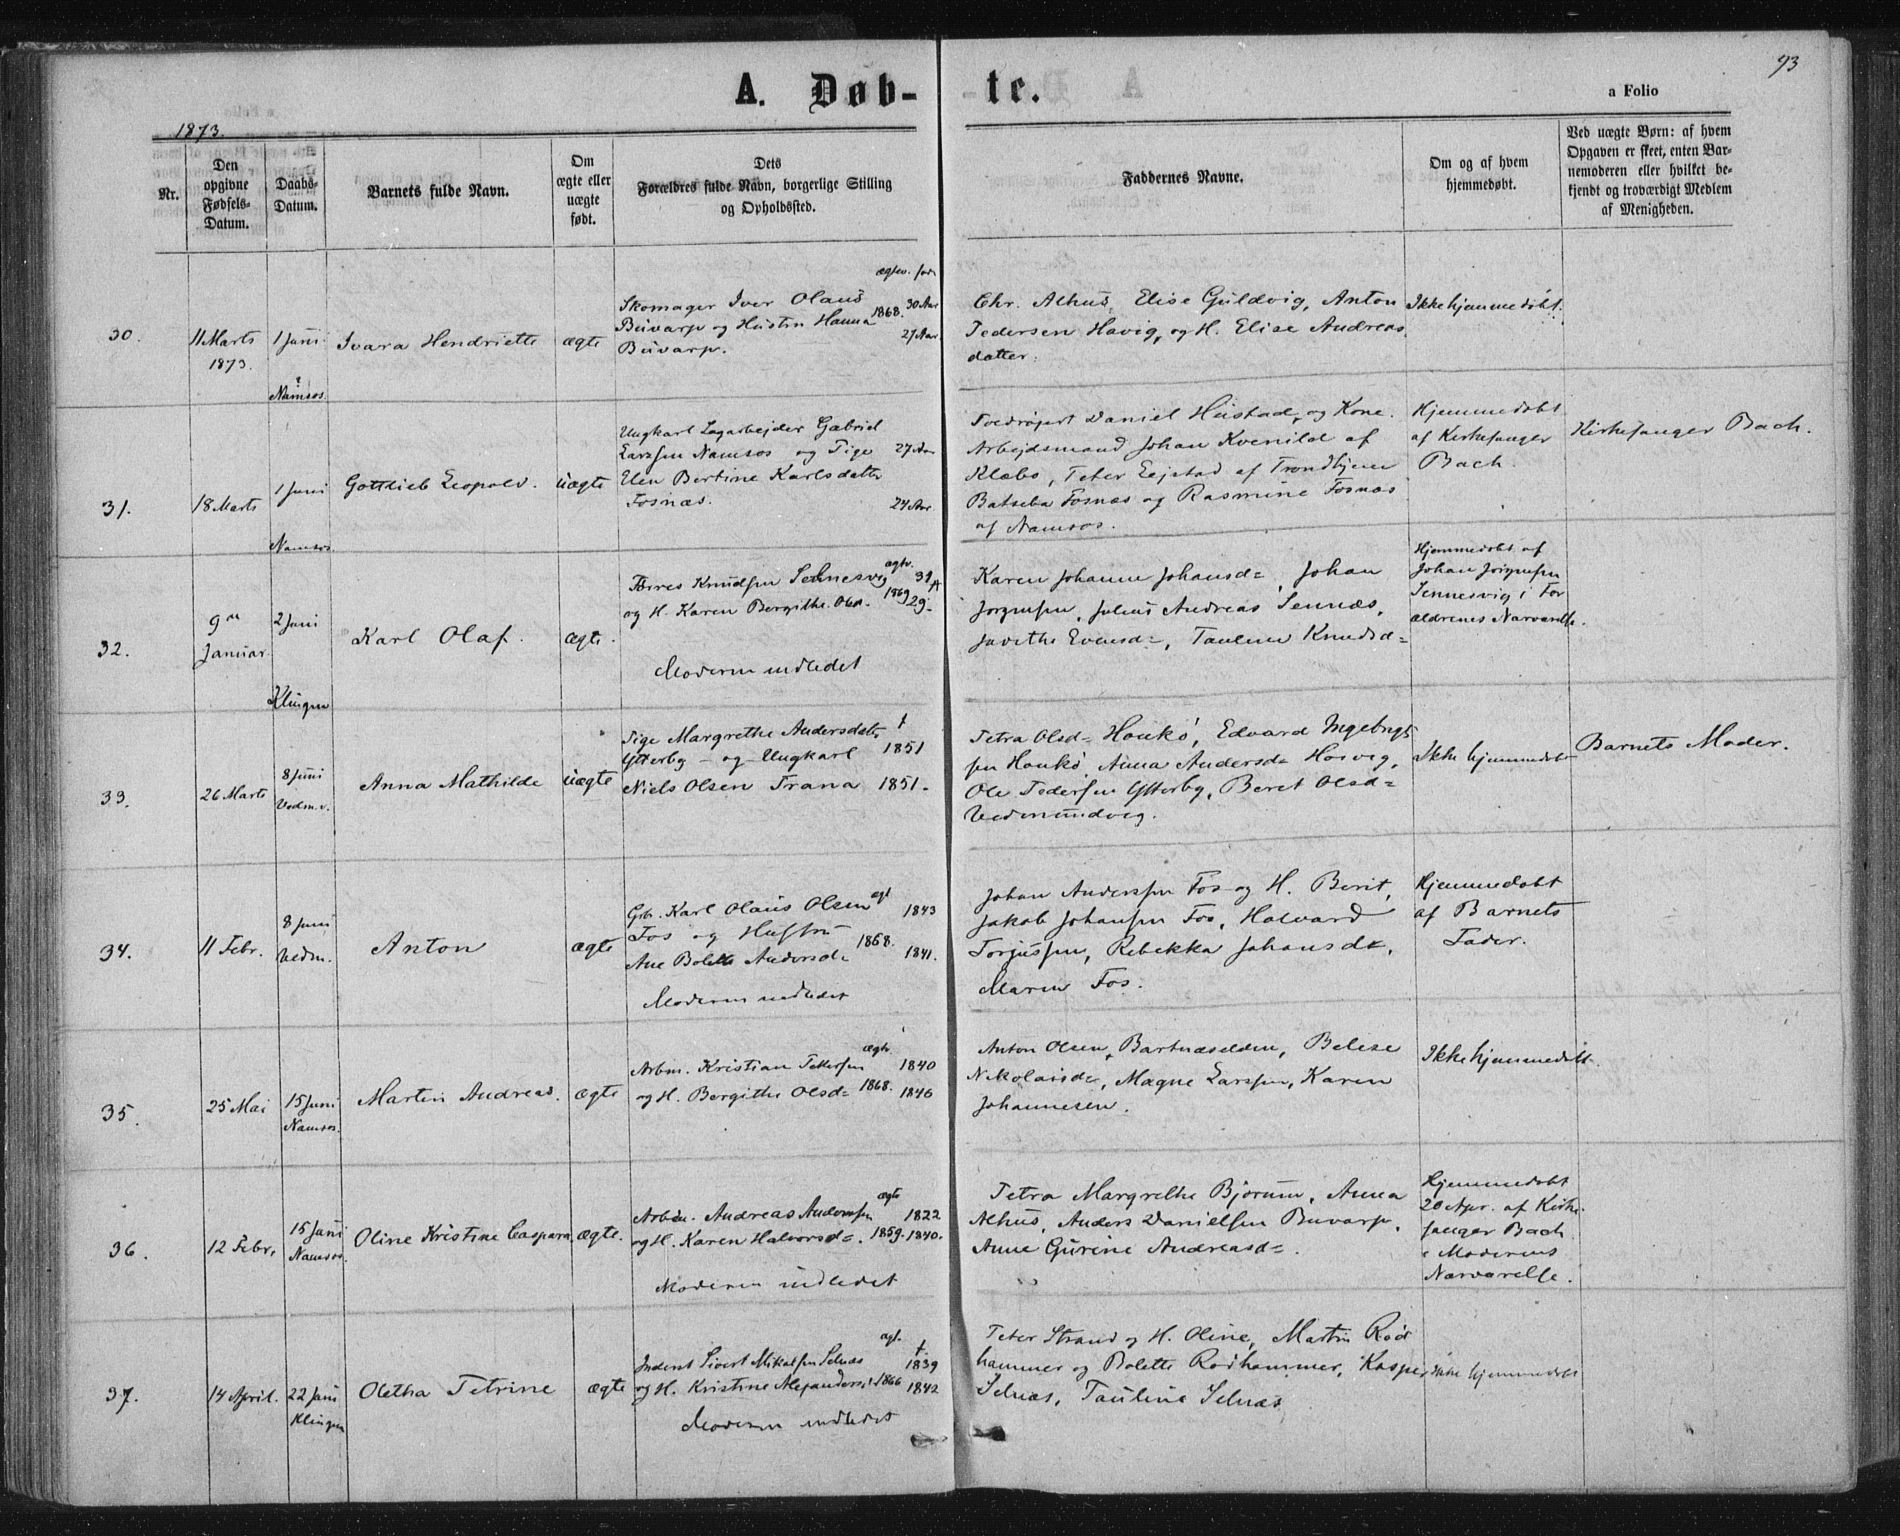 93
A. Døb- te.
a Folio
1873.
Nr.
Den opgivne Fødsels-Datum.
Daabs-Datum.
Barnets fulde Navn.
Om ægte eller uægte født.
Dets Forældres fulde Navn, borgerlige Stilling og Opholdssted.
Faddernes Navne.
Om og af hvem hjemmedøbt.
Ved uægte Børn: af hvem Opgaven er skeet, enten Barnemoderen eller hvilket bekjendt og troværdigt Medlem af Menigheden.
30.
11 Marts
1873.
1 Juni
Namsos.
Ivara Hendriette
ægte
Skomager Iver Olaus 30 Aar
Buvarp og Hustru Hanna 1868.
Buvarp. 27 Aar.
Chr. Alhus, Elise Guldvig, Anton
Pedersen Havig, og H. Elise Andreas
datter.
Ikke hjemmedøbt.
31.
18 Marts
1 Juni
Namsos.
Gottlieb Leopold.
uægte
Ungkarl Sagarbejder Gabriel
Larssen Namsos og Pige 27 Aar
Elen Bertine Karlsdatter
Fosnæs. 24 Aar.
Daniel Hustad, og Kone.
Arbejdsmand Johan Kvenild af
Klæbo, Peter Eejstad af Trondhjem
Batseba Fosnæs og Rasmine Fosnæs
af Namsos.
Hjemmedøbt
af Kirkesanger
Bach.
Kirkesanger Bach.
32.
9de
Januar.
2 Juni
Klingen
Karl Olaf.
ægte.
Knudsen Sennesvig
og H. Karen Bergithe Olsd. 1869 29
Moderen indledet
Karen Johanne Johansd=, Johan
Jørgensen, Julius Andreas Sennæs,
Evensd=, Pauline Knudsd=
Hjemmedøbt af
Johan Jørgensen
Sennesvig i For
ældrenes Nærværelse.
33.
26 Marts
8 Juni
Vedm.v.
Anna Mathilde
uægte
Pige Margrethe Andersdatter
Ytterby - og Ungkarl 1851
Niels Olsen Trana 1851.
Petra Olsd= Haukø, Edvard Ingebrigt
sen Haukø, Anna Andersd= Hosvig,
Ole Pedersen Ytterby, Beret Olsd=
Vedmundvig.
Ikke hjemmedøbt
Barnets Moder.
34.
11 Febr.
8 Juni
Vedm.
Anton
ægte
Grb. Karl Olaus Olsen ægt 1843
Fos og Hustru
Ane Bolette Andersd= 1868. 1841.
Moderen indledet
Johan Anderssen Fos og H. Berit,
Jakob Johansen Fos, Halvard
Torjussen, Rebekka Johansd=,
Maren Fos.
Hjemmedøbt
af Barnets
Fader.
35.
25 Mai
15 Juni
Namsos.
Martin Andreas.
ægte
Arbm. Kristian Pettersen ægtv. 1840
og H. Bergithe Olsd= 1868. 1846
Anton Olsen, Bartnæselden, Belise
Nikolaisd=, Magne Larssen, Karen
Johannesen.
Ikke hjemmedøbt.
36.
12 Febr.
15 Juni
Namsos.
Oline Kristine Caspara
ægte.
Arbm. Andreas Anderssen ægtv 1822
og H. Karen Halvorsd=. 1859. 1840.
Moderen indledet
Petra Margrethe Bjørum, Anna
Alhus, Anders Danielsen Buvarp,
Anne Gurine Andreasd=.
Hjemmedøbt
20 Apr. af Kirke
sanger Bach
i Moderens
Nærværelse.
37.
14 April.
22 Juni
Klingen
Oletha Petrine
ægte
Inderst Sivert Mikalsen Selnæs ægt. 1839
og H. Kristine Alexandersd 1866 1842
Moderen indledet
Peter Strand og H. Oline, Martin Rød
hammer og Bolette Rødhammer, Kasper
Selnæs, Pauline Selnæs
Ikke hjemmedøbt